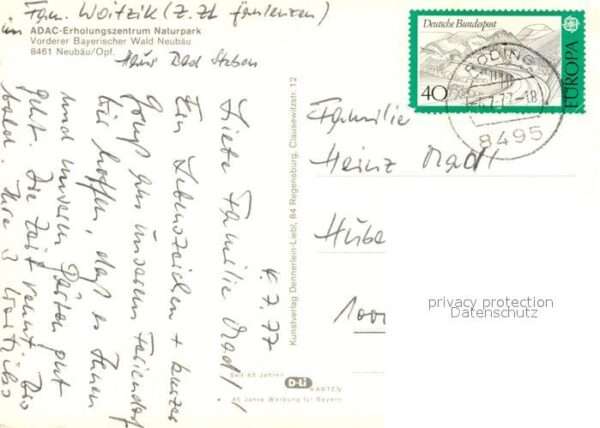 Fam. Woitzik (z. Zt. faulenzen)
im ADAC-Erholungszentrum Naturpark
Vorderer Bayerischer Wald Neubäu
8461 Neubäu/Opf.
Haus Bad Steben
4.7.77
Liebe Familie Madl!
Ein Lebenszeichen + kurzer
Gruß aus unserem Feriendorf
Wir hoffen, daß es Ihnen
und unserem Garten gut
geht. Die Zeit rennt. Bis
bald. Ihre 3 Woitziks
Kunstverlag Dennerlein-Liebl, 84 Regensburg, Clausewitzstr. 12
Seit 45 Jahren
D-Li
KARTEN
45 Jahre Werbung für Bayern
Deutsche Bundespost
40
EUROPA
RODING
8495
Familie
Heinz Madl
Hube
1000
privacy protection
Datenschutz